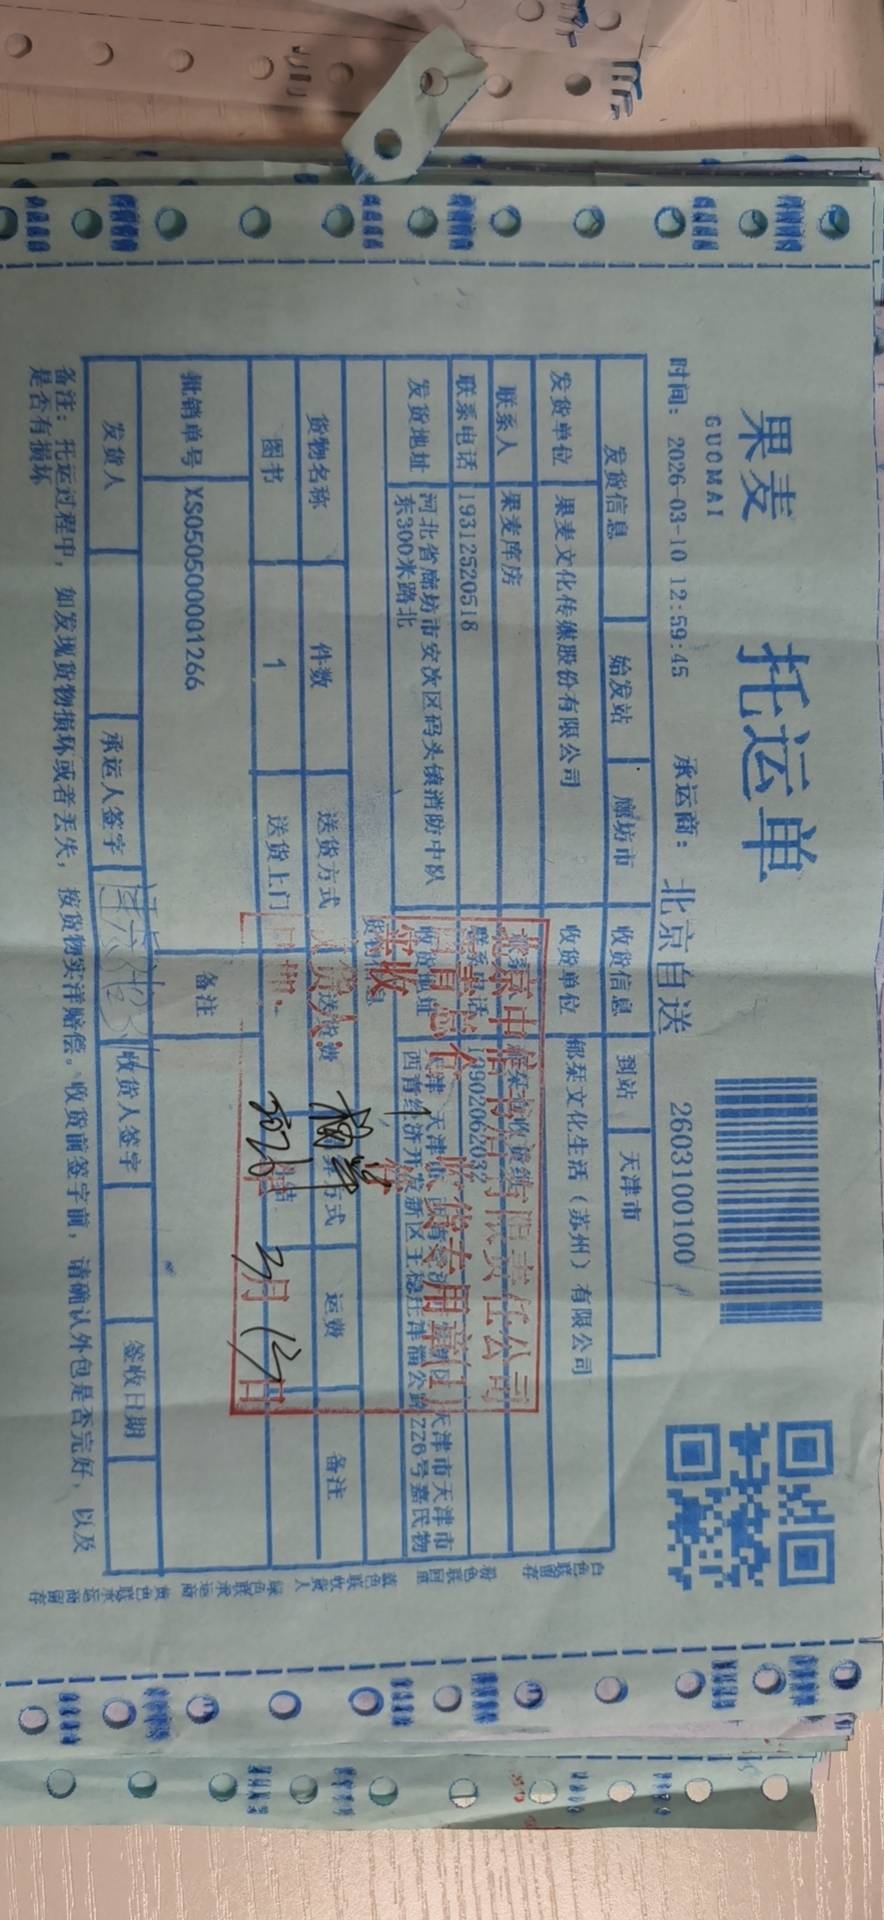 果麦
GUOMAI
托运单
时间: 2026-03-10 12:59:45 承运商: 北京自送 2603100100
发货信息 始发站 廊坊市 收货信息 到站 天津市
发货单位 果麦文化传媒股份有限公司 收货单位 郁栞文化生活（苏州）有限公司
联系人 果麦库房
联系电话 19312520518 联系电话 19902062032
发货地址 河北省廊坊市安次区码头镇消防中队 收货地址
东300米路北 西青经济开发新区王稳庄津淄公路226号嘉民物
货物名称 件数 送货方式 送货费 方式 运费 备注
图书 1 送货上门
批销单号 XS050500001266 备注
发货人 承运人签字 收货人签字 签收日期
备注: 托运过程中, 如发现货物损坏或者丢失, 按货物实洋赔偿。收货前签字前, 请确认外包是否完好, 以及
是否有损坏
有限责任公司
收货专用章
实收
2026 3月13日
白色联留存
粉色联回单
蓝色联收货人
绿色联承运商
黄色联承运商留存